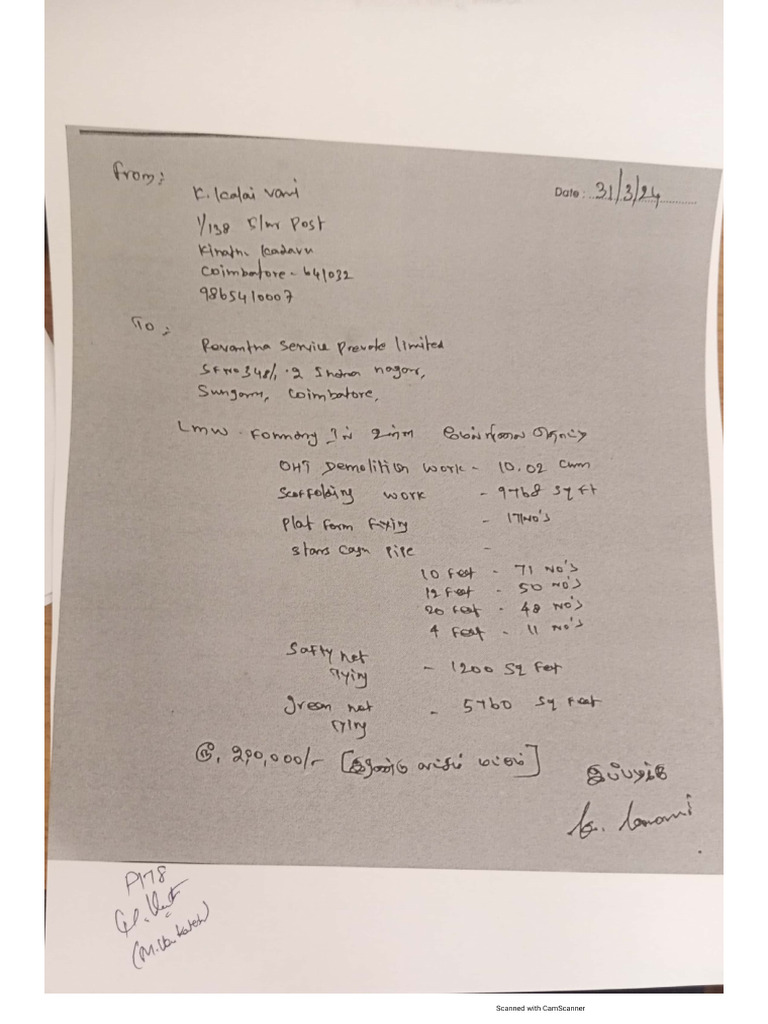 From:
K. Kalai Vani
Date: 31/3/24
1/138 S/nr Post
Kinathu kadavu
Coimbatore - 641032
9865410007
To:
Revantha Service Prevate limited
SF No 348/1.2 Indra nagar,
Sungam, Coimbatore,
LMW. Foundry உள்ள மேல்நிலை தொட்டி
OHT Demolition work - 10.02 Cum
Scaffolding work - 9768 Sq ft
Plat form fixing - 171No's
Pipe -
10 Feet - 71 No's
12 Feet - 50 No's
20 Feet - 48 No's
4 Feet - 11 No's
Safty net
- 1200 Sq Feet
green net
- 5760 Sq Feet
ரூ. 2,00,000/- [இரண்டு லட்சம் மட்டும்]
இப்படிக்கு
P178
(M. Venkatesh)
Scanned with CamScanner